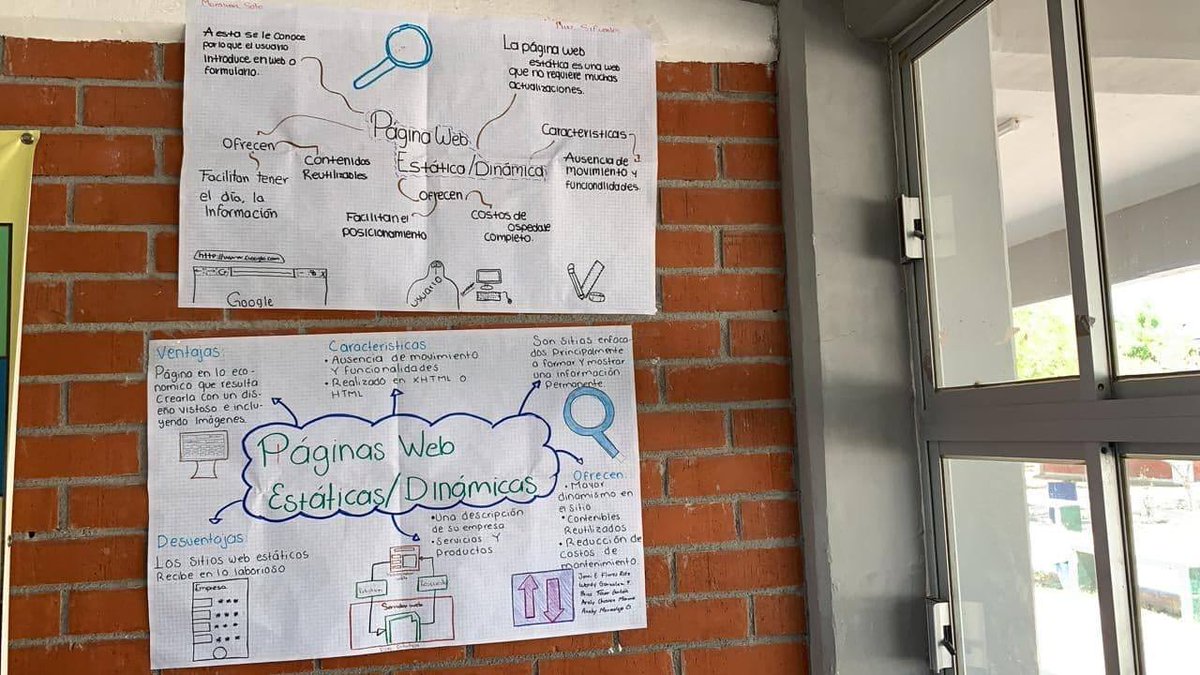 A esta se le conoce
por lo que el usuario
introduce en web o
formulario.
La página web
estática es una web
que no requiere muchas
actualizaciones.
Página Web
Estática/Dinámica
Ofrecen
Contenidos
Reutilizables
Facilitan tener
el día, la
Información
Características
Ausencia de
movimiento y
funcionalidades.
Ofrecen
Facilitan el
posicionamiento
Costos de
ospedaje
completo.
Google
Usuario
Ventajas
Página en lo eco-
nomico que resulta
Crearla con un dis-
eño vistoso e inclu-
yendo Imágenes.
Características
• Ausencia de movimiento
Y funcionalidades
• Realizado en XHTML O
HTML
Son sitios enfoca-
dos principalmente
a formar y mostrar
una información
Permanente
Páginas Web
Estáticas/Dinámicas
Desventajas
Los sitios web estáticos
Recibe en lo laborioso
Empresa
• Una descripción
de su empresa
• Servicios Y
Productos
Servidor web
Ofrecen.
• Mayor
dinamismo en
el sitio
• Contenibles
Reutilizados
• Reducción de
costos de
mantenimiento